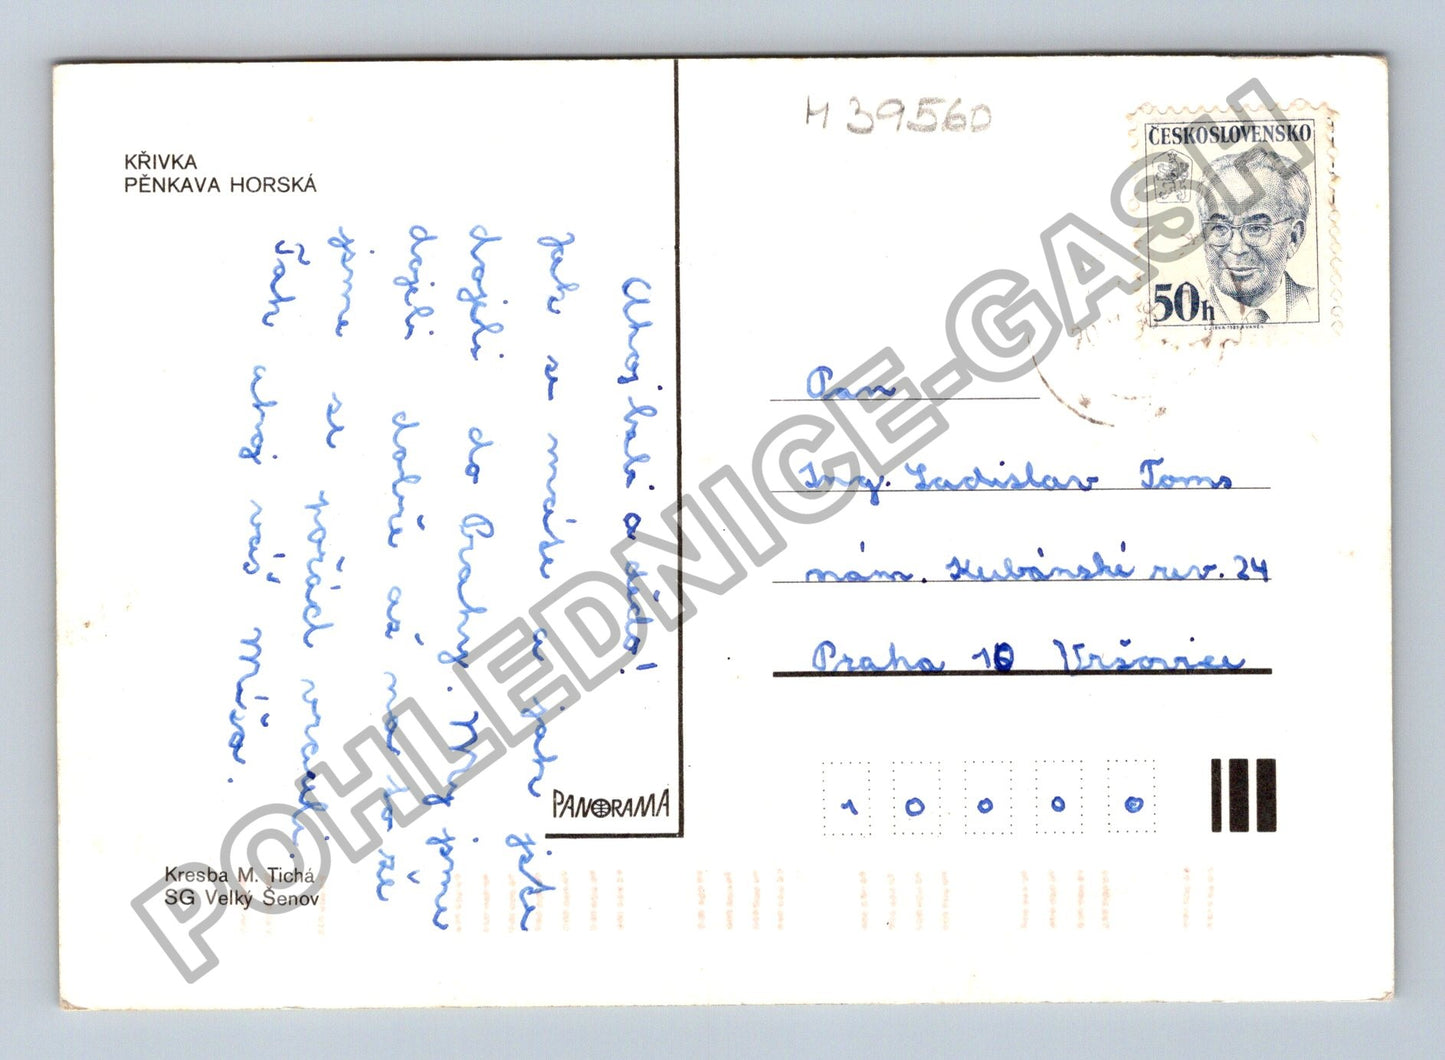 KŘIVKA
PĚNKAVA HORSKÁ
Ahoj babi a dědo!
Jak se máte a jak jste
dojeli do Prahy. My jsme
dojeli dobře až na to že
jsme se pořád vraceli.
Tak ahoj váš Míša.
PANORAMA
Kresba M. Tichá
SG Velký Šenov
M 39560
ČESKOSLOVENSKO
50h
Pan
Ing. Ladislav Toms
nám. Kubánské rev. 24
Praha 10 Vršovice
10000
POHLEDNICE-GASH